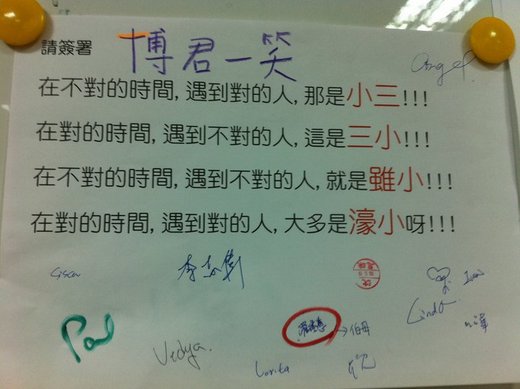 請簽署
博君一笑
Angel
在不對的時間,遇到對的人,那是小三!!!
在對的時間,遇到不對的人,這是三小!!!
在不對的時間,遇到不對的人,就是雖小!!!
在對的時間,遇到對的人,大多是濠小呀!!!
Linda
Paul
Vidya.
→伯母
Lorita